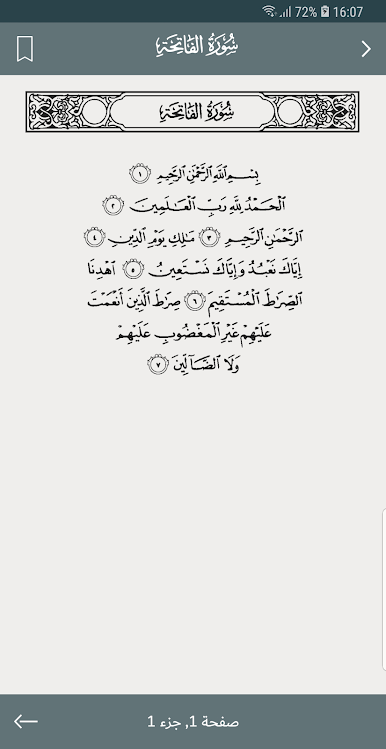 72% 16:07
سُورَةُ الفَاتِحَةِ
سُورَةُ الفَاتِحَةِ
بِسْمِ ٱللَّهِ ٱلرَّحْمَٰنِ ٱلرَّحِيمِ ١
ٱلْحَمْدُ لِلَّهِ رَبِّ ٱلْعَٰلَمِينَ ٢
ٱلرَّحْمَٰنِ ٱلرَّحِيمِ ٣ مَٰلِكِ يَوْمِ ٱلدِّينِ ٤
إِيَّاكَ نَعْبُدُ وَإِيَّاكَ نَسْتَعِينُ ٥ ٱهْدِنَا
ٱلصِّرَٰطَ ٱلْمُسْتَقِيمَ ٦ صِرَٰطَ ٱلَّذِينَ أَنْعَمْتَ
عَلَيْهِمْ غَيْرِ ٱلْمَغْضُوبِ عَلَيْهِمْ
وَلَا ٱلضَّآلِّينَ ٧
صفحة 1, جزء 1